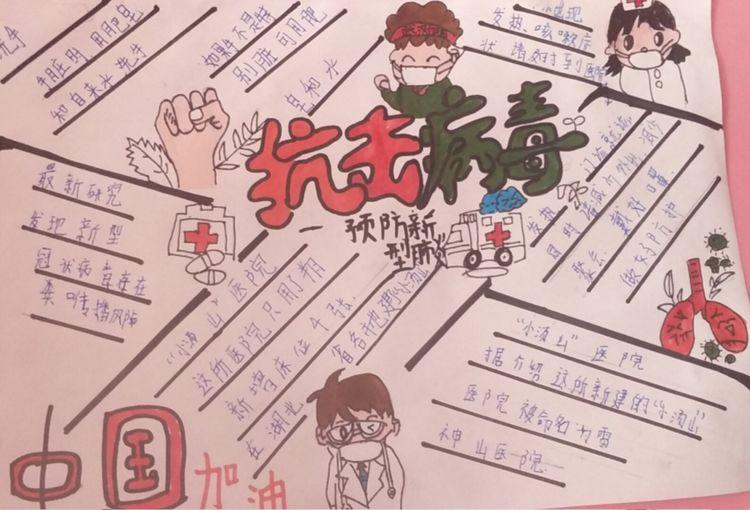 用肥皂
和自来水洗手
如果手不是特
别脏可用肥
皂和水
出现
发热、咳嗽症
状 请及时到医院
抗击病毒
—预防新
型肺炎
最新研究
发现新型
冠状病毒存在
粪口传播风险
发热
门诊就诊
日时
减少
聚会 戴好口罩
做好防护
“小汤山”医院
这所医院只用了
新增床位千张
在湖北
省各市也建“小汤山”
“小汤山”医院
据介绍这所新建的“小汤山”
医院被命名为雷
神山医院
中国加油